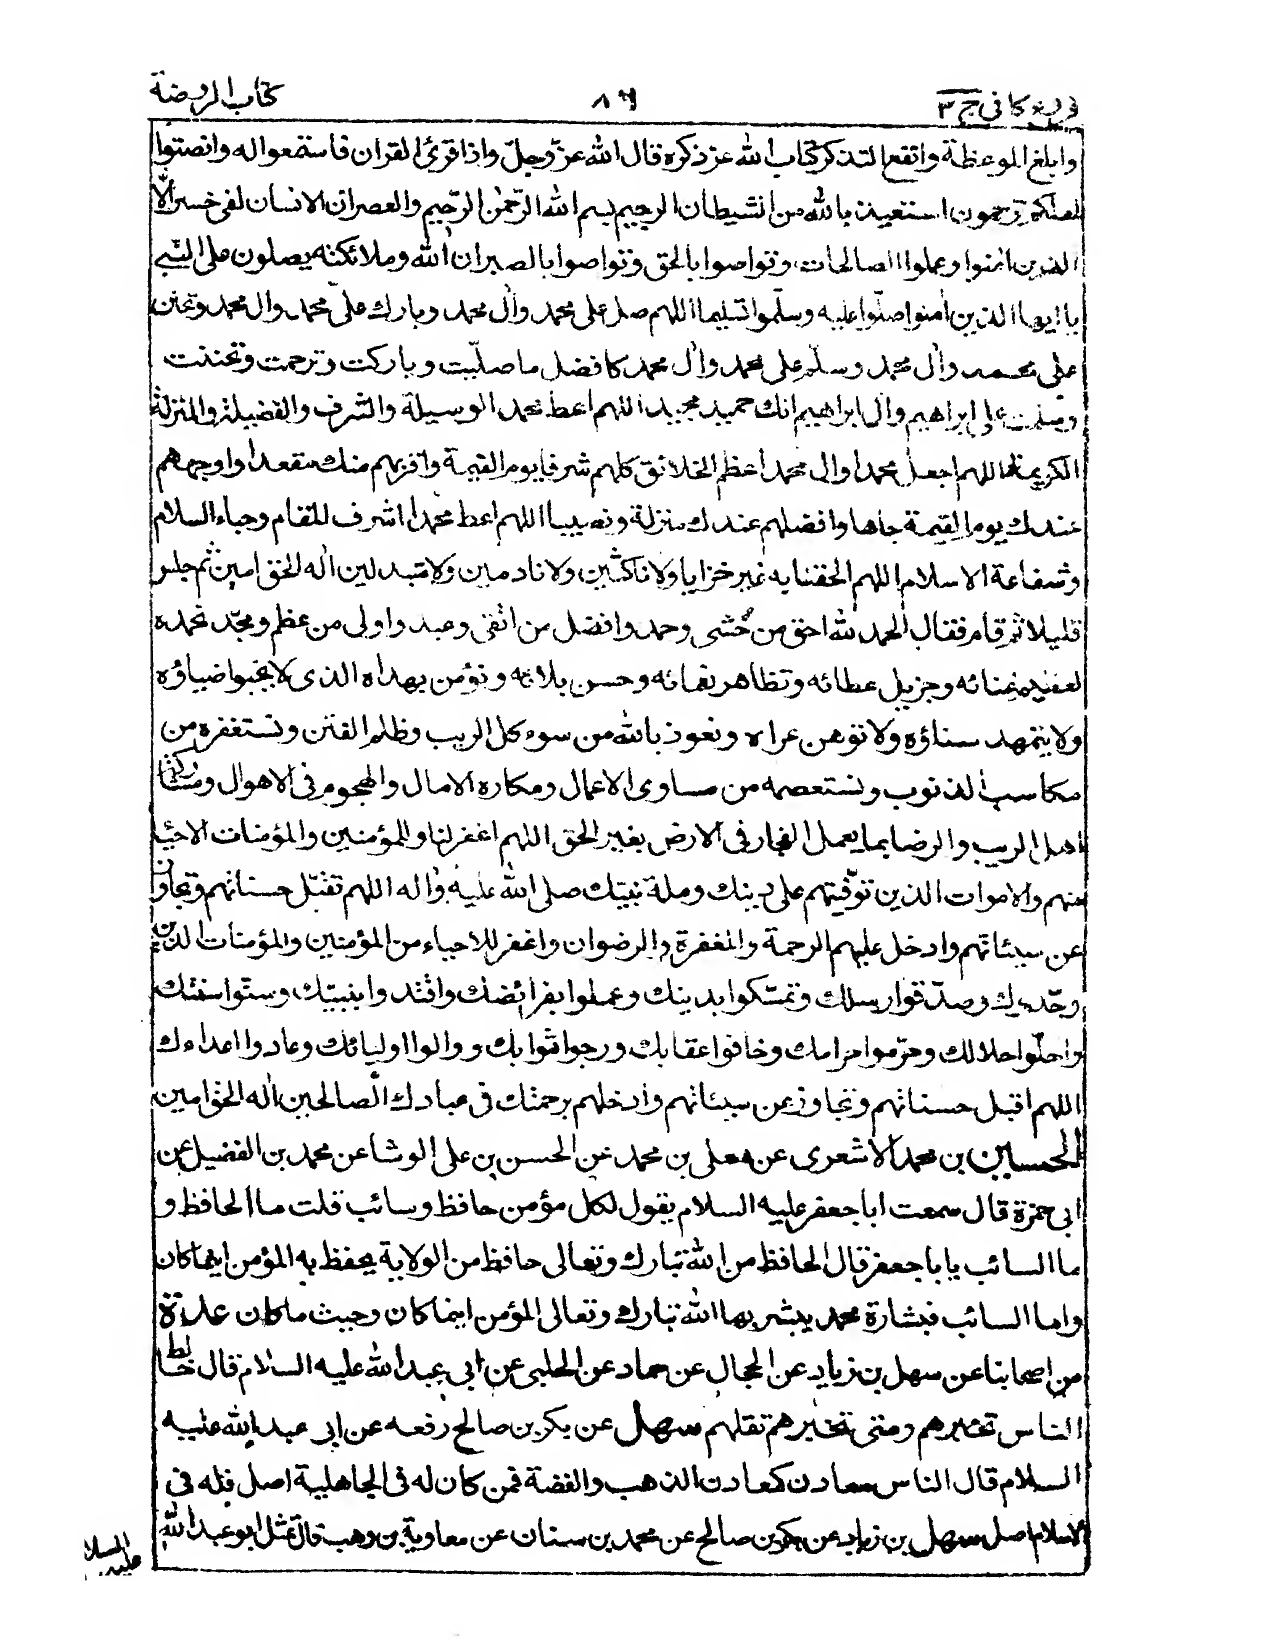 فروع كافى ج ٣ ٨٦ كتاب الروضة
وابلغ الموعظة وانفع التذكر كتاب الله عز ذكره قال الله عزّ وجلّ واذا قرئ القران فاستمعوا له وانصتوا
لعلكم ترحمون استعيذ بالله من الشيطان الرجيم بسم الله الرّحمٰن الرّحيم والعصر ان الانسان لفى خسر الّا
الذين اٰمنوا وعملوا الصالحات وتواصوا بالحق وتواصوا بالصبر ان الله وملائكته يصلون على النّبي
يا ايها الذين اٰمنوا صلّوا عليه وسلّموا تسليما اللهم صل على محمد واٰل محمد وبارك على محمد وال محمد وتحنن
على محمد واٰل محمد وسلّم على محمد واٰل محمد كافضل ما صلّيت وباركت وترحمت وتحننت
وسلمت على ابراهيم واٰل ابراهيم انك حميد مجيد اللهم اعط محمد الوسيلة والشرف والفضيلة والمنزلة
الكريمة اللهم اجعل محمدا وال محمد اعظم الخلائق كلهم شرفا يوم القيمة واقربهم منك مقعدا واوجههم
عندك يوم القيمة جاها وافضلهم عندك منزلة ونصيبا اللهم اعط محمدا اشرف المقام وحباء السلام
وشفاعة الاسلام اللهم الحقنا به غير خزايا ولا ناكثين ولا نادمين ولا مبدلين اله الحق امين ثم جلس
قليلا ثم قام فقال الحمد لله احق من خُشى وحمد وافضل من اتّقى وعبد واولى من عظم ومجّد نحمده
لعظيم غنائه وجزيل عطائه وتظاهر نعمائه وحسن بلائه ونؤمن بهداه الذى لا يخبوا ضياؤه
ولا يتمهد سناؤه ولا توهن عراه ونعوذ بالله من سوء كل الريب وظلم الفتن ونستغفره من
مكاسب الذنوب ونستعصمه من مساوى الاعمال ومكاره الامال والهجوم فى الاهوال ومشاركة
اهل الريب والرضا بما يعمل الفجار فى الارض بغير الحق اللهم اغفر لنا وللمؤمنين والمؤمنات الاحياء
منهم والاموات الذين توفّيتهم على دينك وملة نبيّك صلى الله عليه واٰله اللهم تقبّل حسناتهم وتجاوز
عن سيئاتهم وادخل عليهم الرحمة والمغفرة والرضوان واغفر للاحياء من المؤمنين والمؤمنات الذين
وحّدوك وصدّقوا رسلك وتمسّكوا بدينك وعملوا بفرائضك واقتدوا بنبيّك وسنّوا سنّتك
واحلّوا حلالك وحرّموا حرامك وخافوا عقابك ورجوا ثوابك ووالوا اوليائك وعادوا اعداءك
اللهم اقبل حسناتهم وتجاوز عن سيئاتهم وادخلهم برحمتك فى عبادك الصالحين اله الحق امين
الحسين بن محمد الاشعرى عن معلى بن محمد عن الحسن بن على الوشا عن محمد بن الفضيل عن
ابى حمزة قال سمعت ابا جعفر عليه السلام يقول لكل مؤمن حافظ وسائب قلت ما الحافظ و
ما السائب يا با جعفر قال الحافظ من الله تبارك وتعالى حافظ من الولاية يحفظ به المؤمن اينما كان
واما السائب فبشارة محمد يبشر بها الله تبارك وتعالى المؤمن اينما كان وحيث ما كان عدة
من اصحابنا عن سهل بن زياد عن الحجال عن حماد عن الحلبى عن ابى عبد الله عليه السلام قال خالط
الناس تخبرهم ومتى تخبرهم تقلهم سهل عن بكر بن صالح رفعه عن ابى عبد الله عليه
السلام قال الناس معادن كمعادن الذهب والفضة فمن كان له فى الجاهلية اصل فله فى
الاسلام اصل سهل بن زياد عن بكر بن صالح عن محمد بن سنان عن معاوية بن وهب قال تمثل ابو عبد الله
عليه السلام